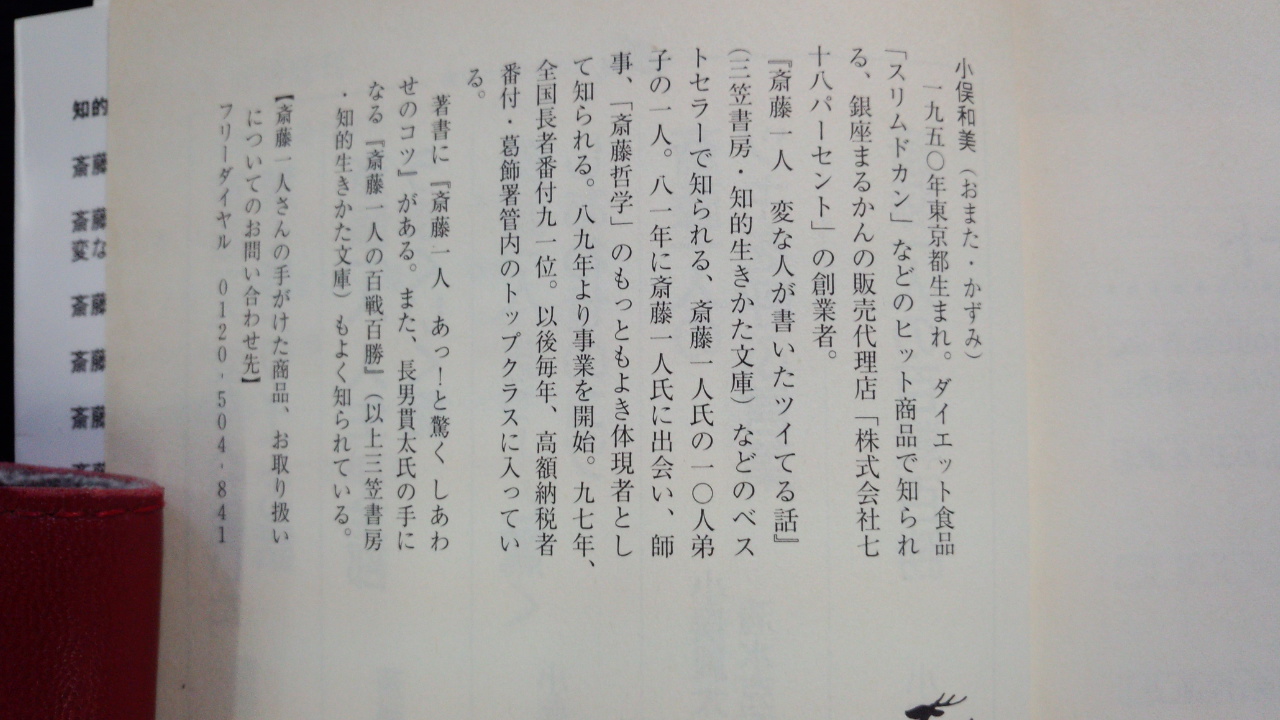 小俣和美（おまた・かずみ）
一九五〇年東京都生まれ。ダイエット食品
「スリムドカン」などのヒット商品で知られ
る、銀座まるかんの販売代理店「株式会社七
十八パーセント」の創業者。
『斎藤一人　変な人が書いたツイてる話』
（三笠書房・知的生きかた文庫）などのベス
トセラーで知られる、斎藤一人氏の一〇人弟
子の一人。八一年に斎藤一人氏に出会い、師
事、「斎藤哲学」のもっともよき体現者とし
て知られる。八九年より事業を開始。九七年、
全国長者番付九一位。以後毎年、高額納税者
番付・葛飾署管内のトップクラスに入ってい
る。
著書に『斎藤一人　あっ！と驚く しあわ
せのコツ』がある。また、長男貫太氏の手に
なる『斎藤一人の百戦百勝』（以上三笠書房
・知的生きかた文庫）もよく知られている。
【斎藤一人さんの手がけた商品、お取り扱い
についてのお問い合わせ先】
フリーダイヤル　0120-504-841
知的
斎藤
斎藤
変な
斎藤
斎藤
斎藤